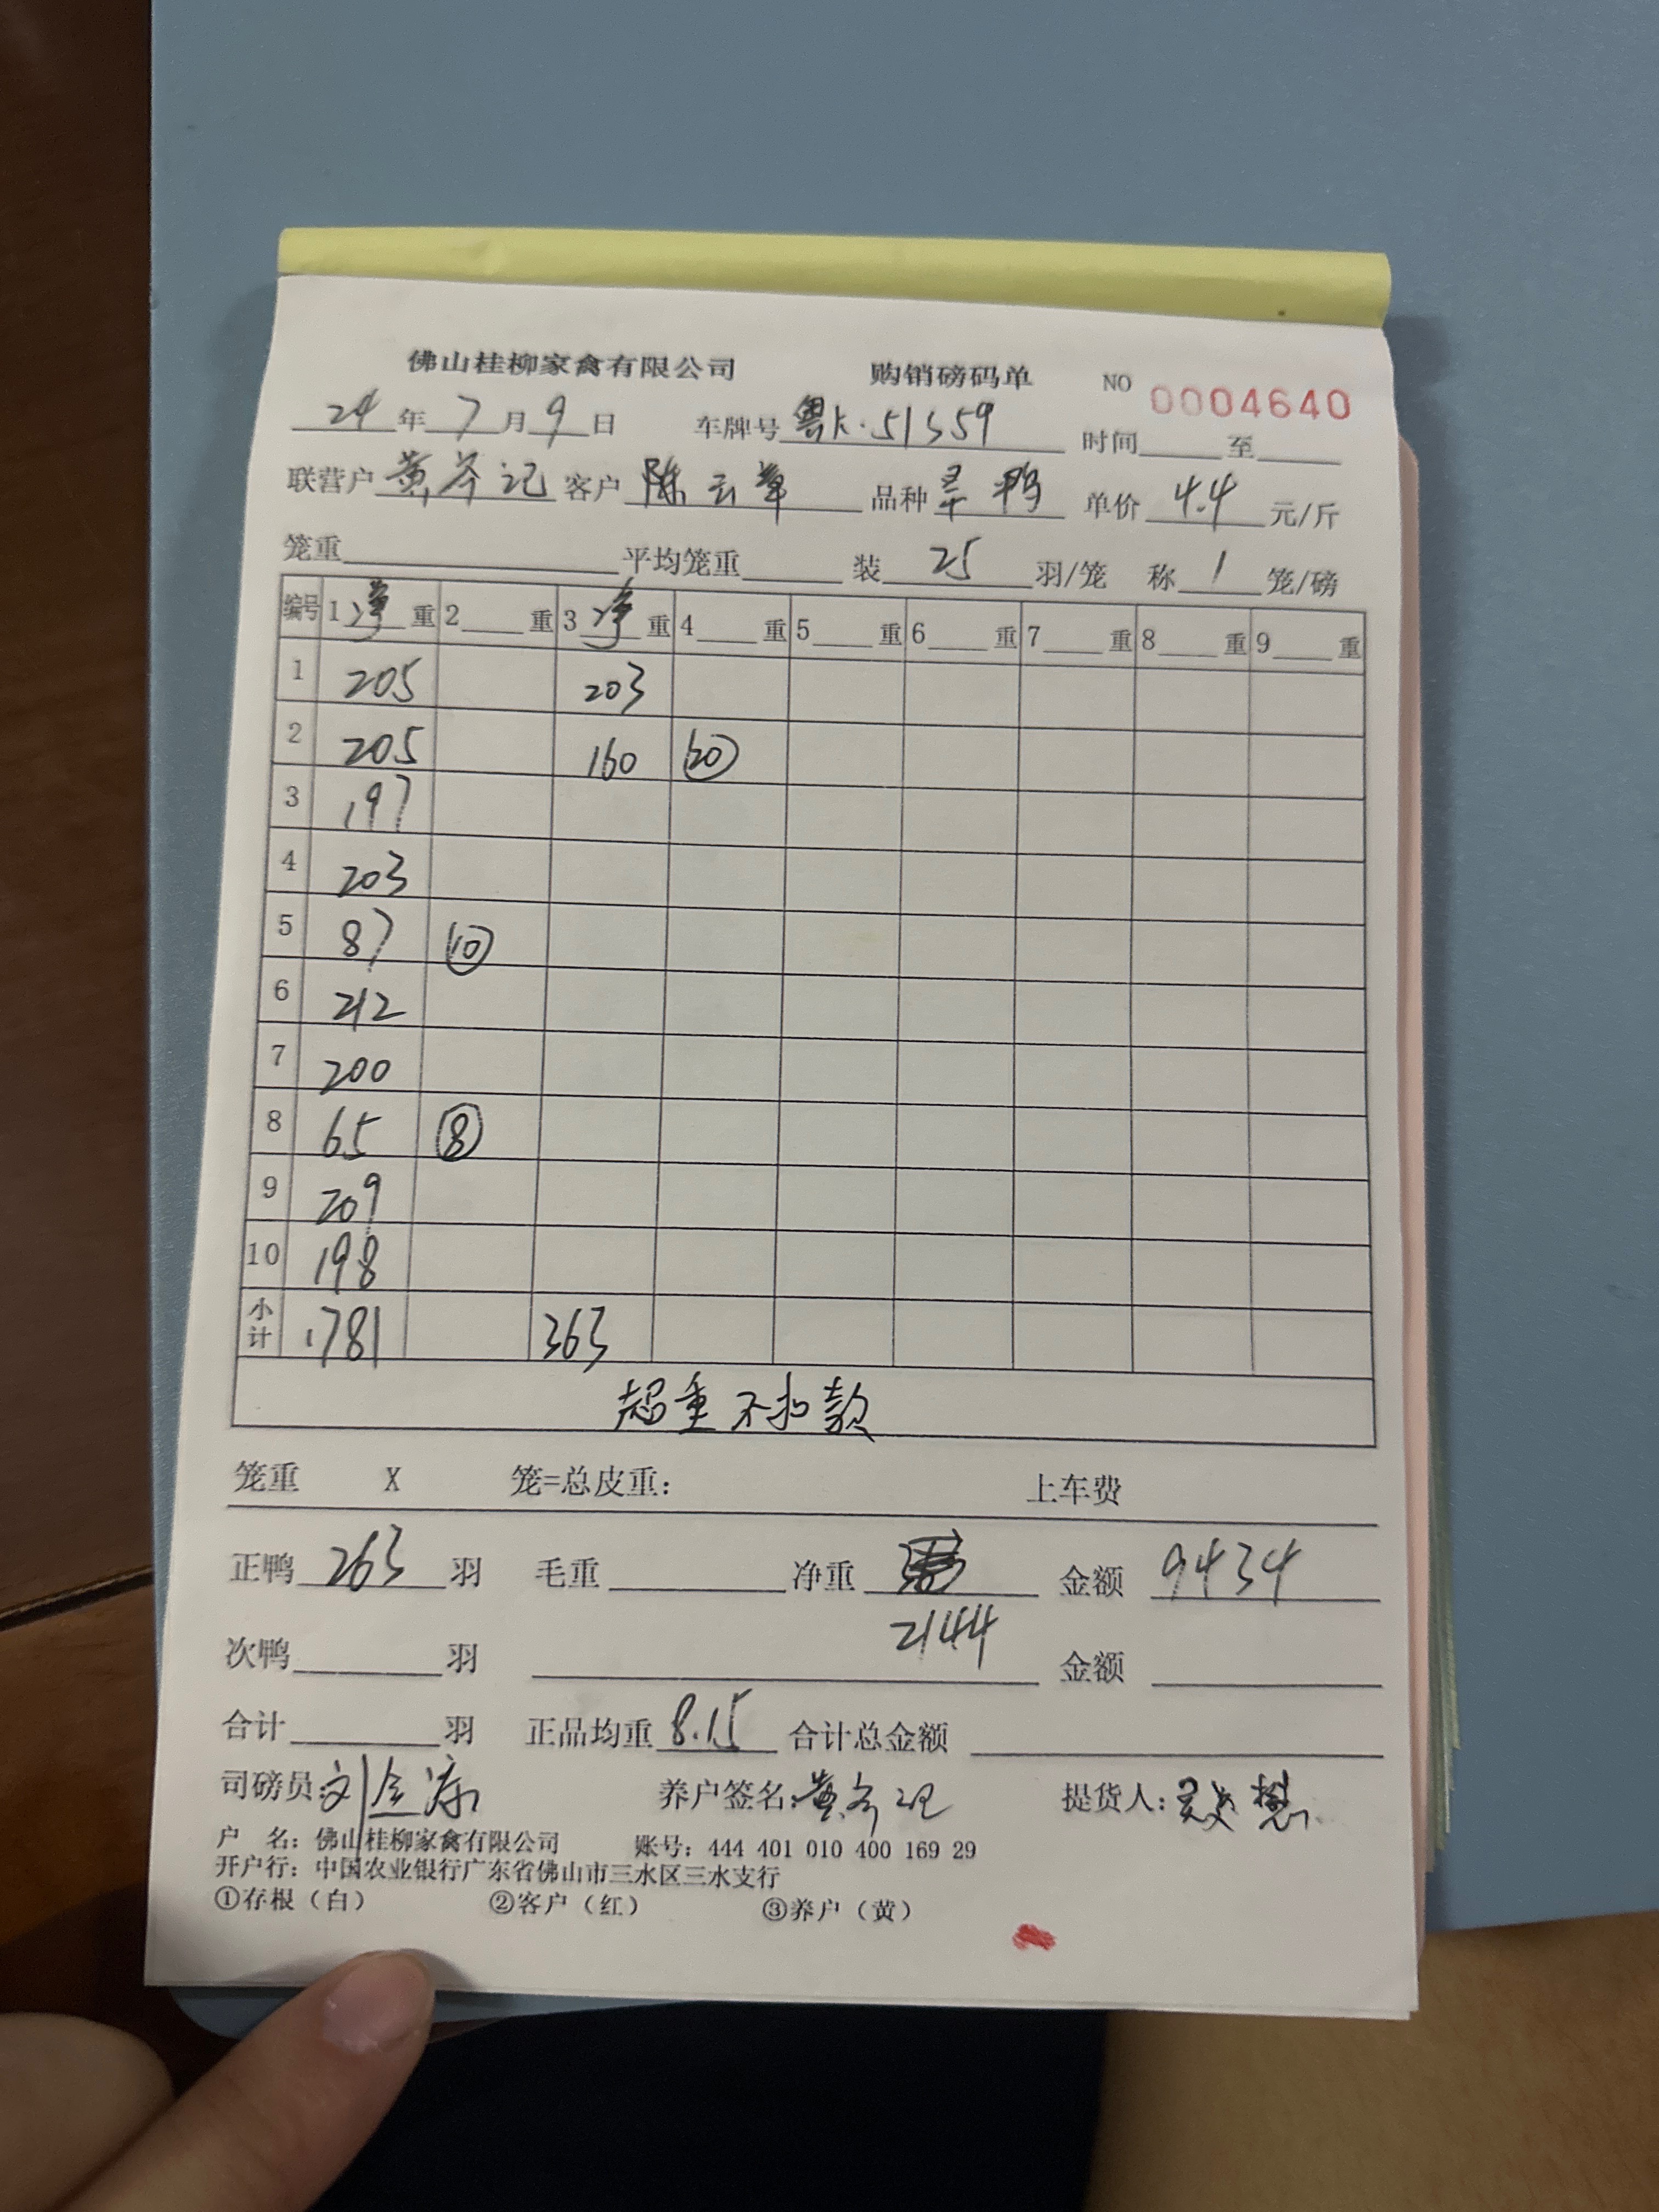 佛山桂柳家禽有限公司 购销磅码单 NO 0004640
24年7月9日 车牌号 粤K·51S59 时间 至
联营户 黄 记 客户 陈云 品种 鸭 单价 4.4 元/斤
笼重 平均笼重 装 25 羽/笼 称 1 笼/磅
编号 1净重 2重 3净重 4重 5重 6重 7重 8重 9重
1 205 203
2 205 160 20
3 197
4 203
5 87 10
6 212
7 200
8 65 8
9 209
10 198
小计 1781 363
超重不扣款
笼重 X 笼=总皮重: 上车费
正鸭 263 羽 毛重 净重 金额 9434
2144
次鸭 羽 金额
合计 羽 正品均重 8.15 合计总金额
司磅员:刘 养户签名:黄 提货人:
户 名: 佛山桂柳家禽有限公司 账号: 444 401 010 400 169 29
开户行: 中国农业银行广东省佛山市三水区三水支行
①存根(白) ②客户(红) ③养户(黄)